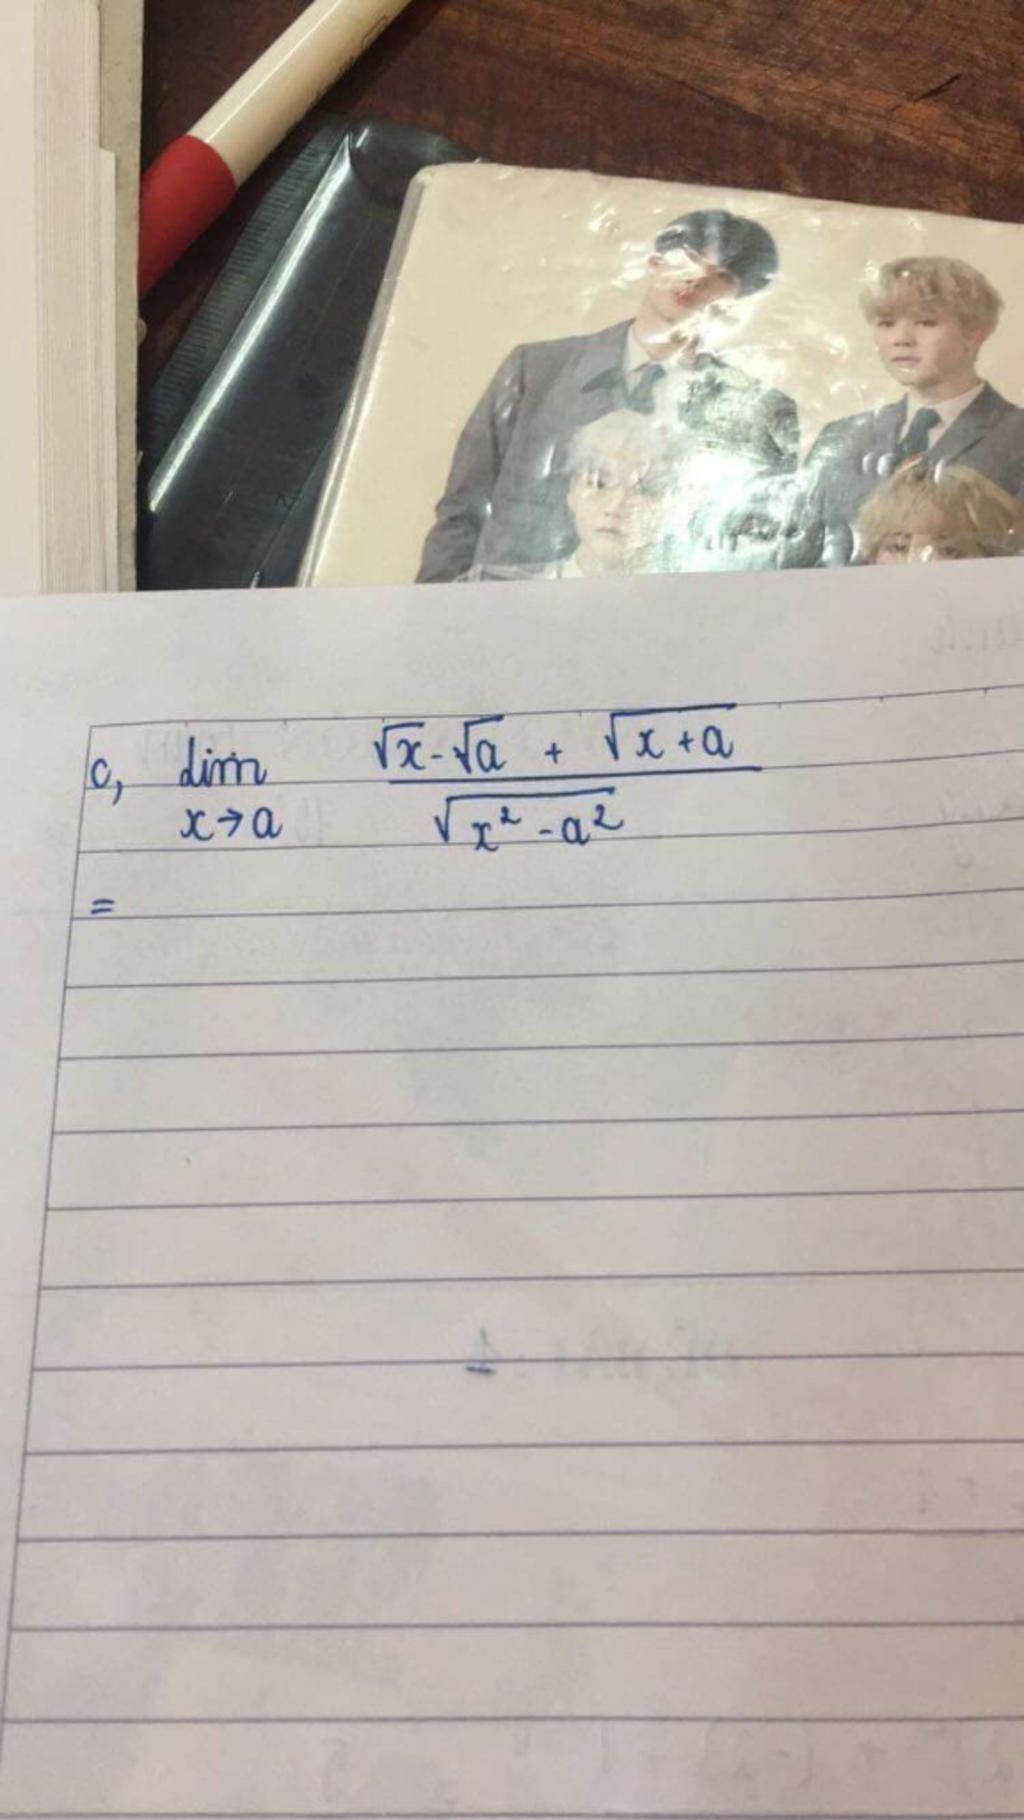 c, lim x→a (√x - √a + √(x + a)) / √(x² - a²)
=